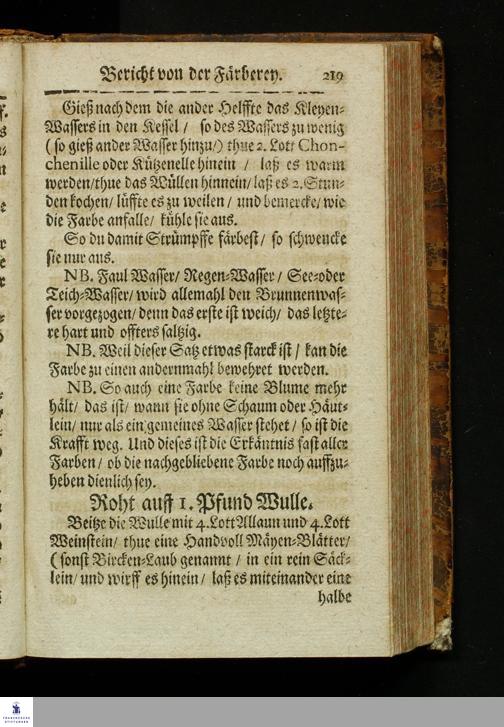 Bericht von der Färberey. 219
Gieß nach dem die ander Helffte das Kleyen-
Wassers in den Kessel / so des Wassers zu wenig
(so gieß ander Wasser hinzu/) thue 2. Lott Chon-
chenille oder Kützenelle hinein / laß es warm
werden/thue das Wüllen hinnein/ laß es 2. Stun-
den kochen/ lüffte es zu weilen / und bemercke/ wie
die Farbe anfalle/ kühle sie aus.
So du damit Strümpffe färbest/ so schwencke
sie nur aus.
NB. Faul Wasser/ Regen-Wasser / See-oder
Teich-Wasser/ wird allemahl den Brunnenwas-
ser vorgezogen/ denn das erste ist weich/ das letzte-
re hart und offters saltzig.
NB. Weil dieser Satz etwas starck ist / kan die
Farbe zu einen andernmahl bewehret werden.
NB. So auch eine Farbe keine Blume mehr
hält/ das ist/ wann sie ohne Schaum oder Häut-
lein/ nur als ein gemeines Wasser stehet / so ist die
Krafft weg. Und dieses ist die Erkäntnis fast aller
Farben / ob die nachgebliebene Farbe noch auffzu-
heben dienlich sey.
Roht auff 1. Pfund Wulle.
Beitze die Wulle mit 4. Lott Allaun und 4. Lott
Weinstein/ thue eine Handvoll Mäyen-Blätter/
(sonst Bircken-Laub genannt / in ein rein Säck-
lein/ und wirff es hinein/ laß es miteinander eine
halbe
FRANCKESCHE
STIFTUNGEN